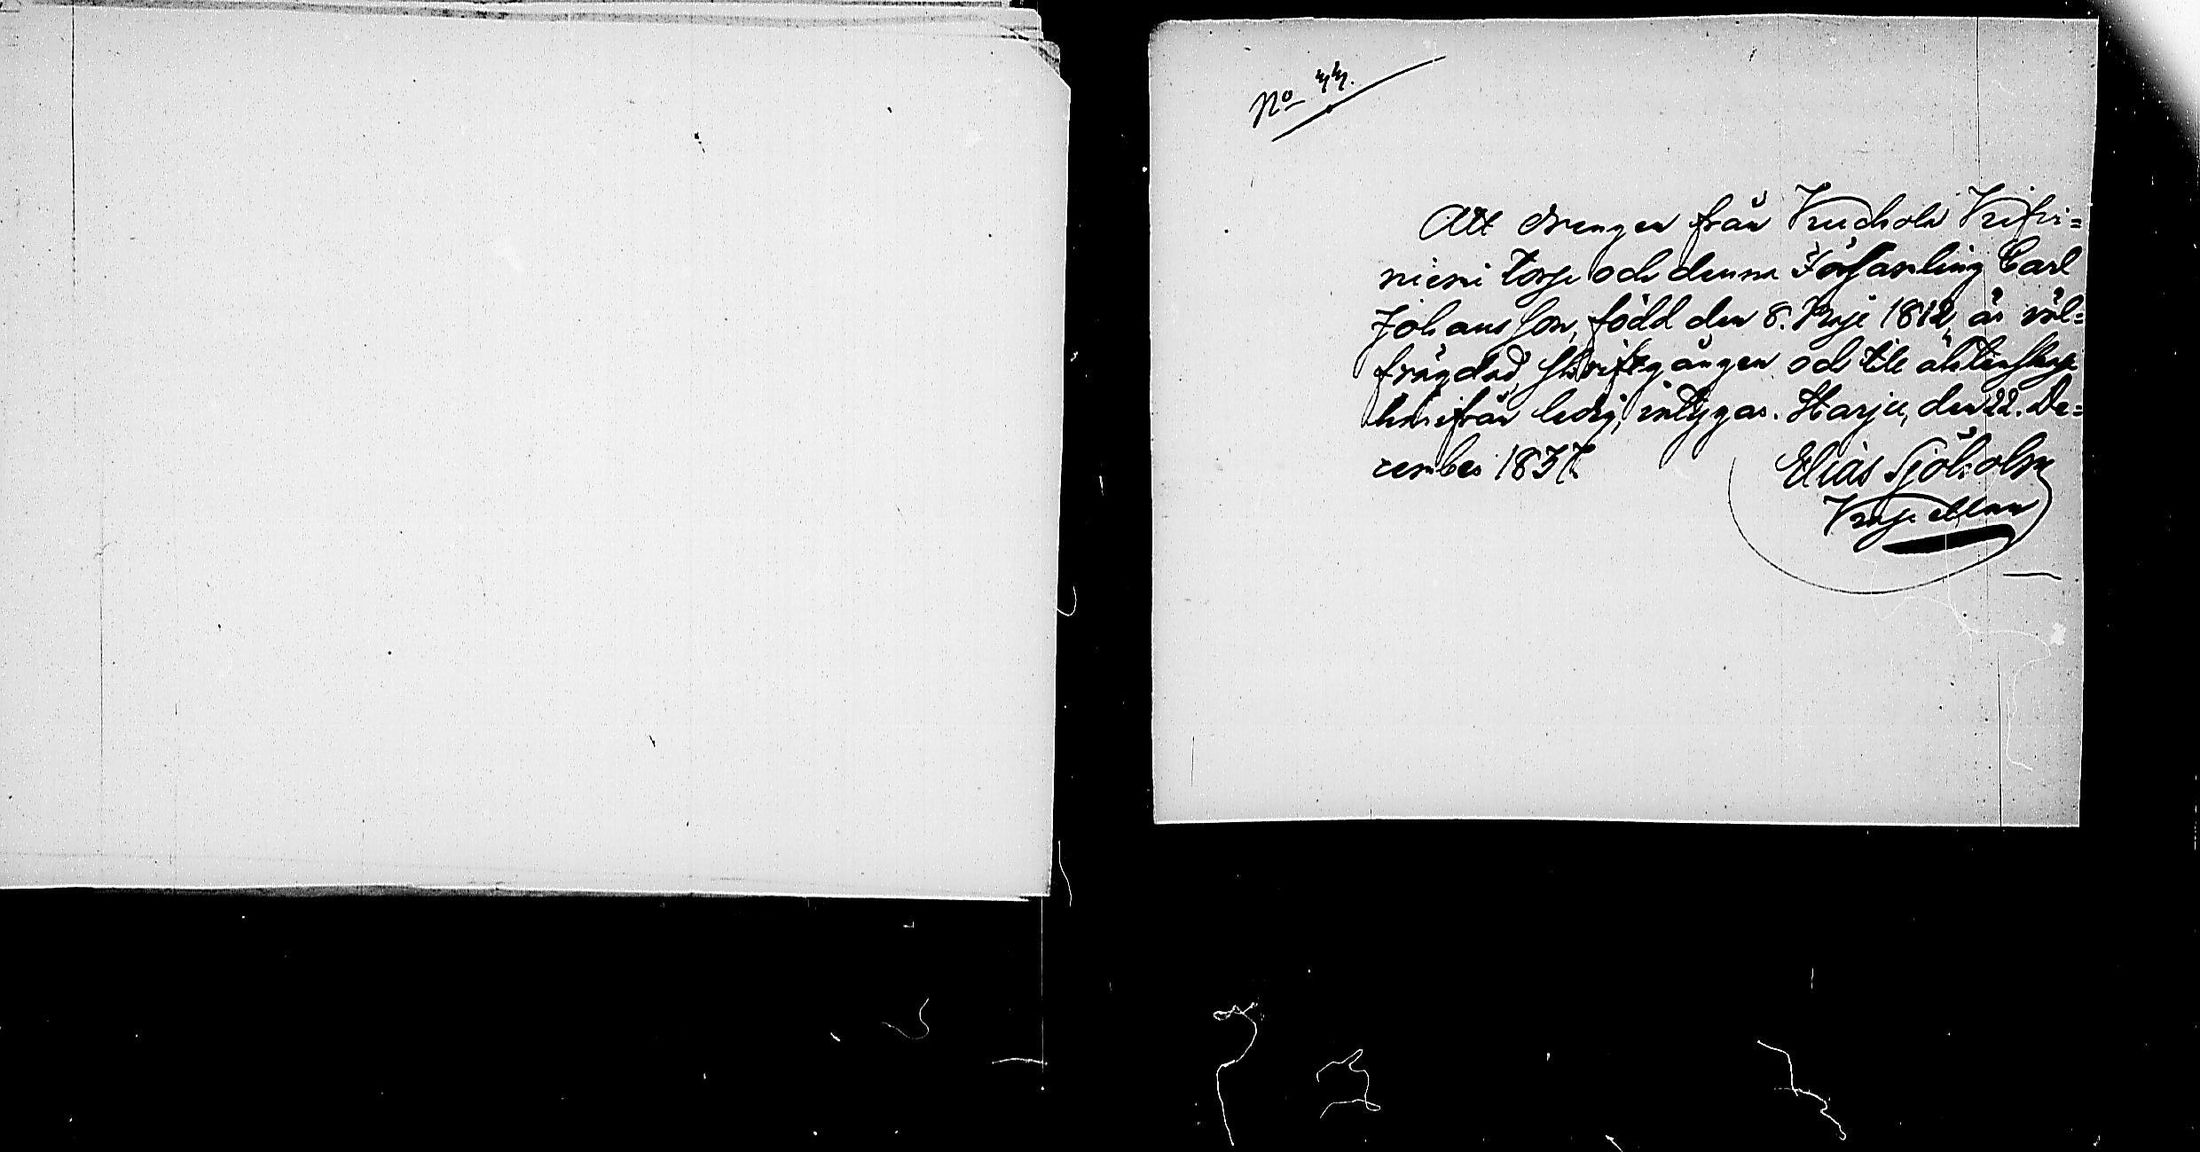 No 44.
Att drengen från Kuckola Kifi=
niemi torp och denna Församling Carl
Johansson, född den 8. Maji 1812, är väl=
frägdad, skriftgången och till äktenskap
hinderfrån ledig, intygas. Harju, den 22. De=
cember 1837.
Elias Sjöholm
Kapellan